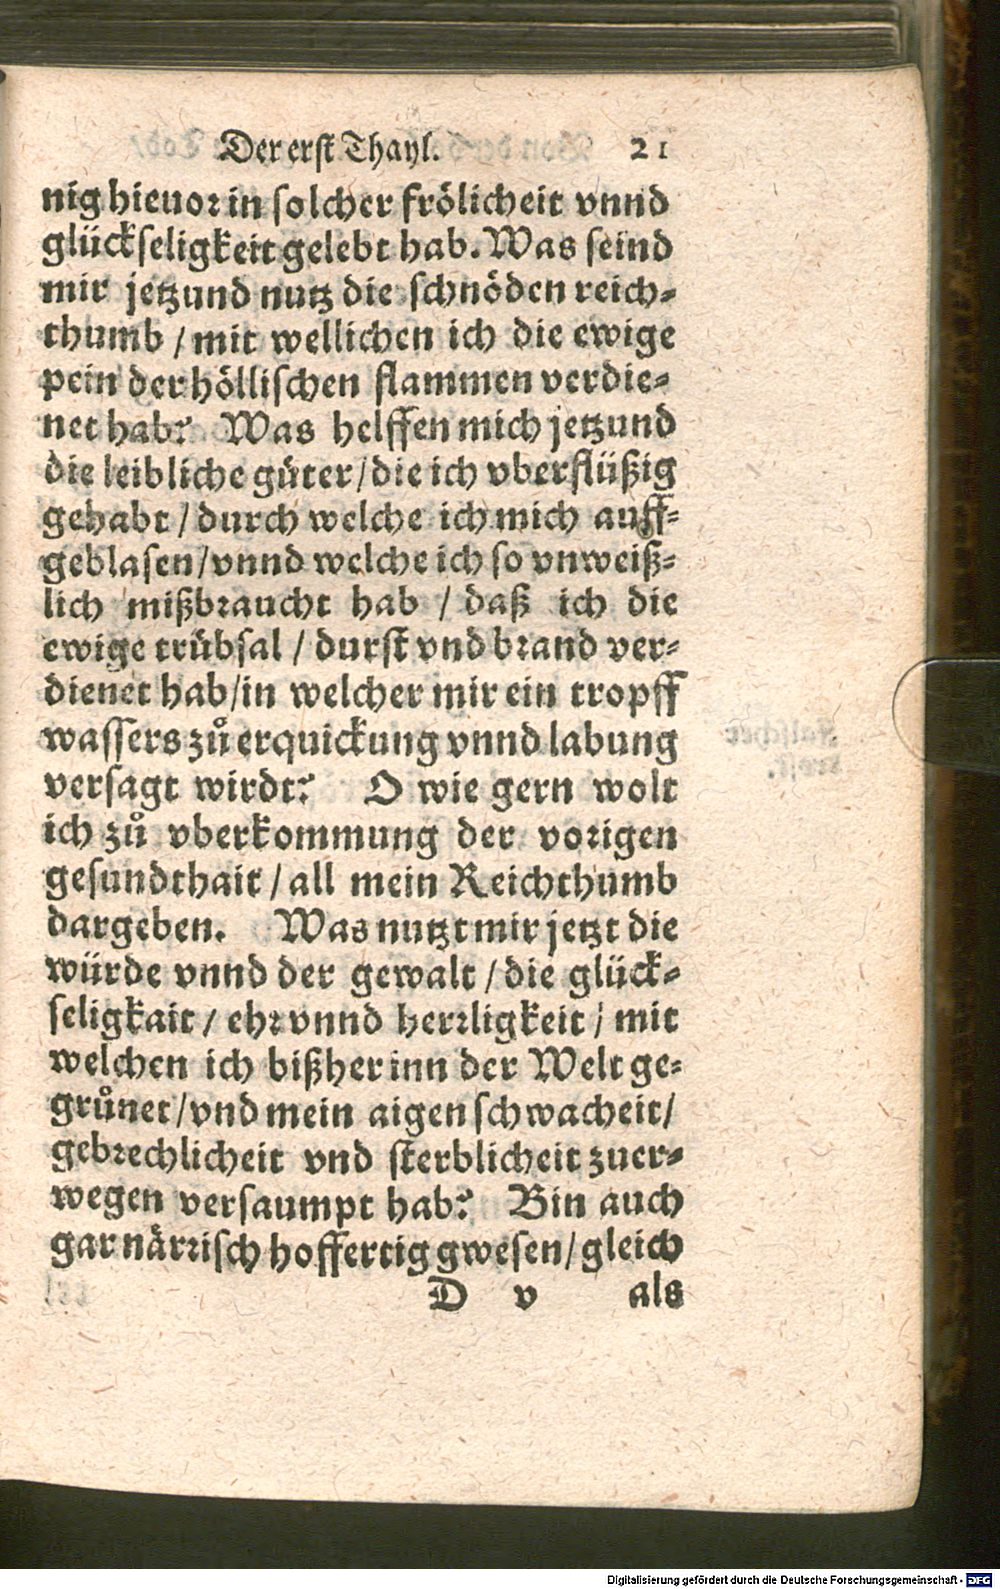 Der erst Thayl. 21
nig hieuor in solcher frölicheit vnnd
glückseligkeit gelebt hab. Was seind
mir jetzund nutz die schnöden reich-
thumb / mit wellichen ich die ewige
pein der höllischen flammen verdie-
net hab? Was helffen mich jetzund
die leibliche güter / die ich vberflüßig
gehabt / durch welche ich mich auff-
geblasen / vnnd welche ich so vnweiß-
lich mißbraucht hab / daß ich die
ewige trübsal / durst vnd brand ver-
dienet hab / in welcher mir ein tropff
wassers zů erquickung vnnd labung
versagt wirdt? O wie gern wolt
ich zů vberkommung der vorigen
gesundthait / all mein Reichthumb
dargeben. Was nutzt mir jetzt die
würde vnnd der gewalt / die glück-
seligkait / ehr vnnd herrligkeit / mit
welchen ich bißher inn der Welt ge-
grůnet / vnd mein aigen schwacheit /
gebrechlicheit vnd sterblicheit zuer-
wegen versaumpt hab? Bin auch
gar närrisch hoffertig gwesen / gleich
D v als
Digitalisierung gefördert durch die Deutsche Forschungsgemeinschaft - DFG